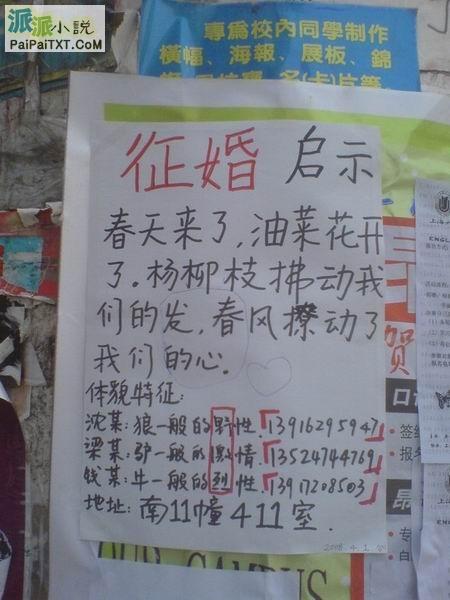 派派小説
PaiPaiTXT.com
專為校內同學制作
橫幅、海報、展板、錦
征婚 启示
春天来了,油菜花开
了。杨柳枝拂动我
们的发,春风撩动了
我们的心。
体貌特征:
沈某:狼一般的野性.「13916295947」
梁某:驴一般的激情.「13524744769」
钱某:牛一般的烈性.「13917208503」
地址:南11幢411室.
2008.4.1
贺
OUR CAMPUS